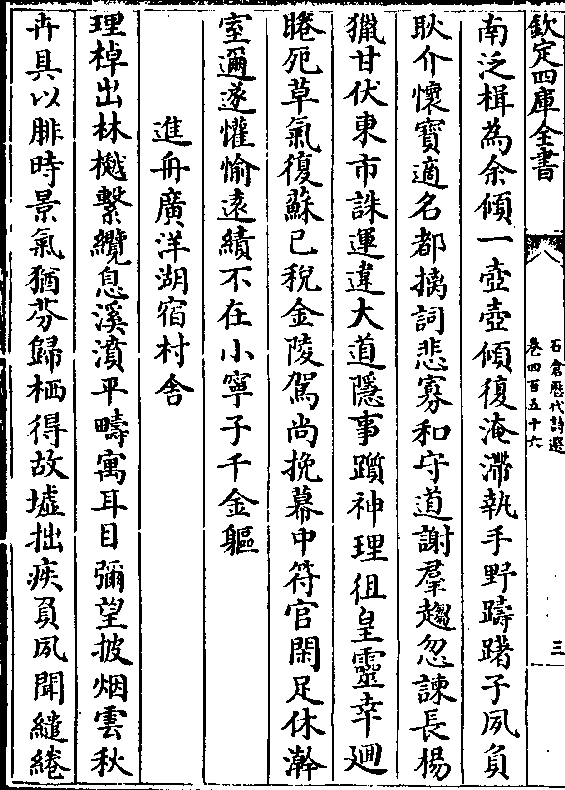 欽定四庫全書
石倉歷代詩選
卷四百五十六
三
南泛楫為余傾一壺壺傾復淹滯執手野躊躇子夙負
耿介懷寶適名都摛詞悲寡和守道謝羣趨忽諫長楊
獵甘伏東市誅運違大道隱事躓神理徂皇靈幸廻
睠死草氣復蘇已稅金陵駕尚挽幕中符官閑足休澣
室邇遂懽愉遠績不在小寧子千金軀
進舟廣洋湖宿村舍
理棹出林樾繫纜息溪濆平疇寓耳目彌望披烟雲秋
卉具以腓時景氣猶芬歸栖得故墟拙疾負夙聞繾綣